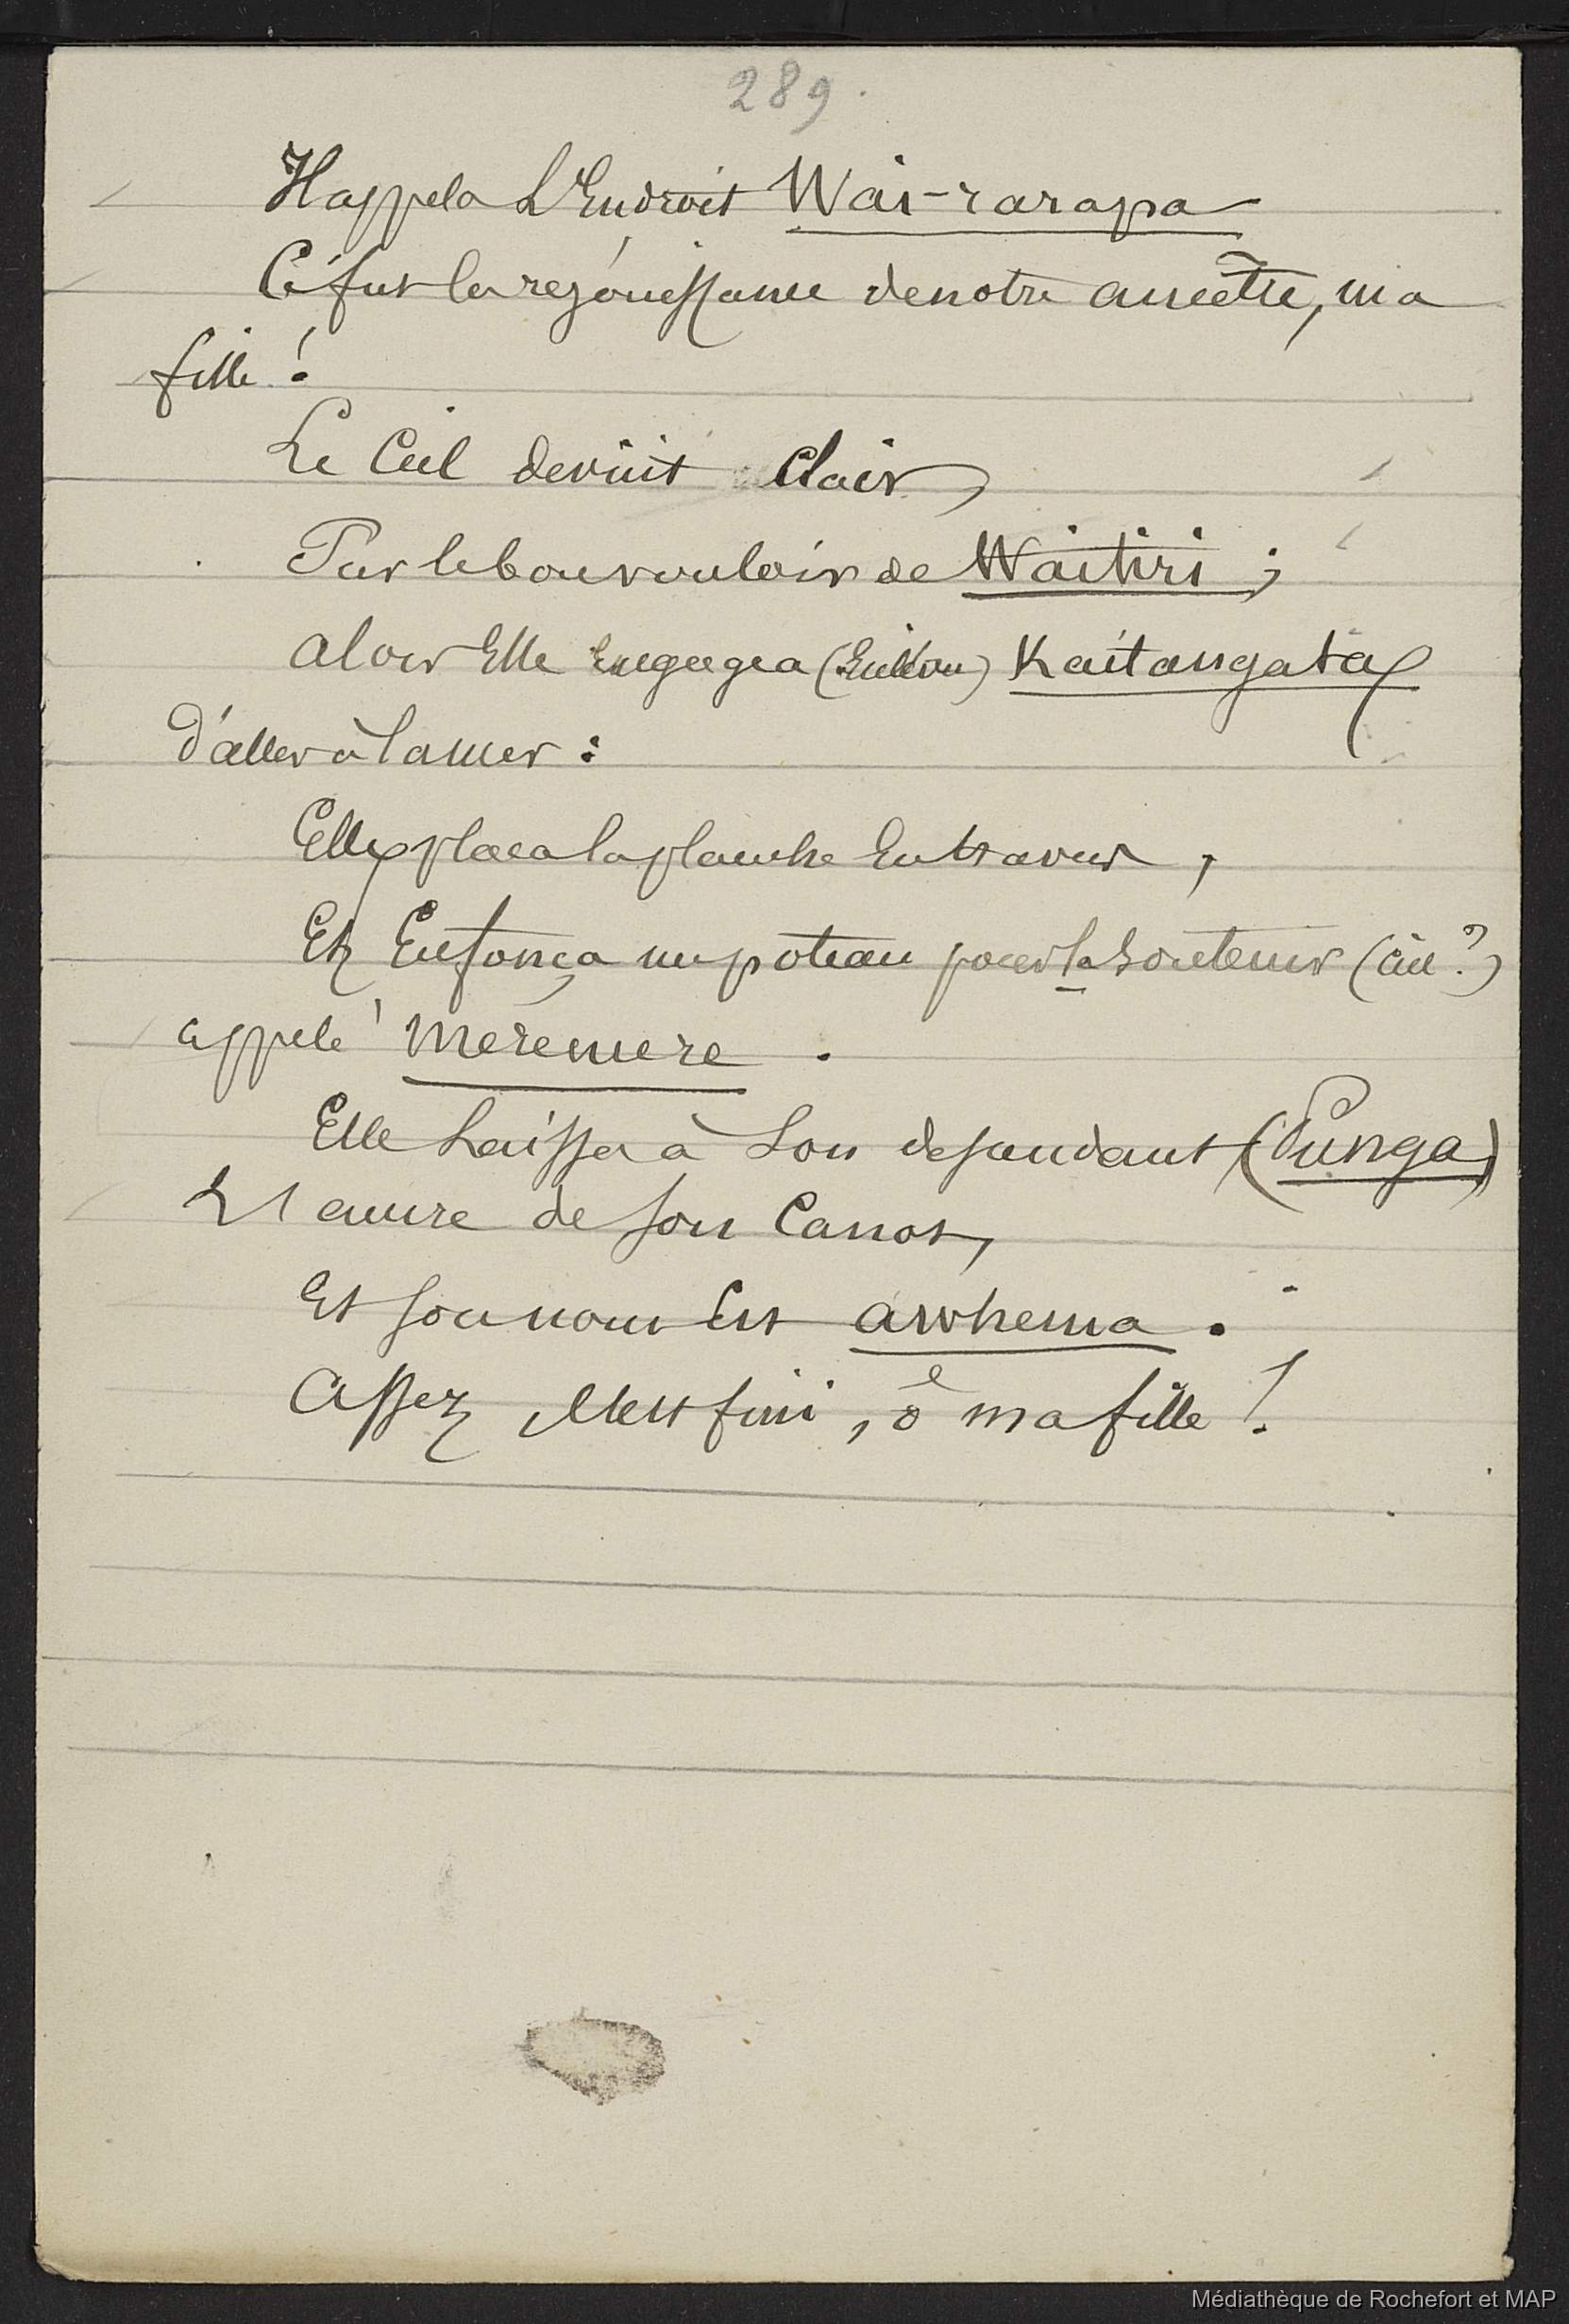 289.
Il appela L'Endroit Wai-rarapa
Ce fut la rejouissance de notre ancêtre, ma
fille !
Le Ciel devint clair,
Par le bon vouloir de Waitiri ;
alors Elle engagea Kaitangata
d'aller à la mer :
Elle plaça la planche En travers,
Et Enfonça un poteau pour le soutenir (ciel ?)
appelé Meremere.
Elle Laissa à Son descendant (Punga)
L'ancre de son Canot,
Et son nom Est awhema.
Assez c'est fini, ô ma fille !
Médiathèque de Rochefort et MAP